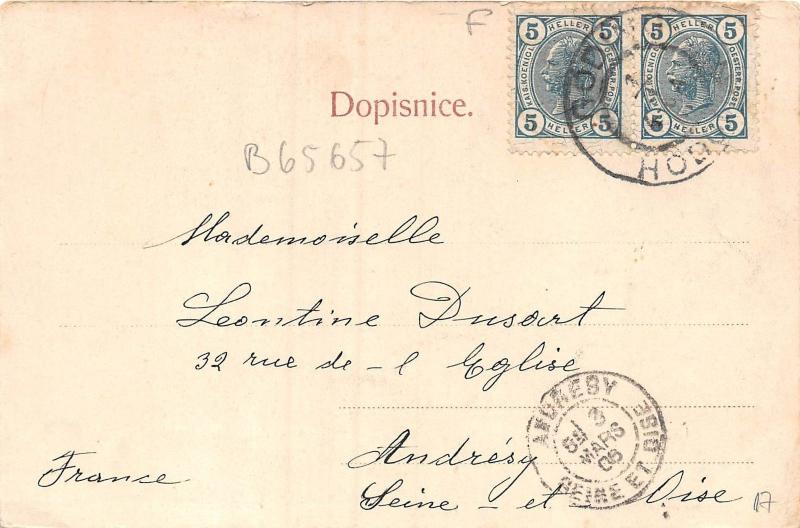 F
5 HELLER 5 5 HELLER 5
KAIS. KOENIGL. OESTERR. POST KAIS. KOENIGL. OESTERR. POST
5 HELLER 5 5 HELLER 5
Dopisnice.
HOD
B65657
Mademoiselle
Leontine Dusart
32 rue de - l Eglise
ANDRESY SEINE ET OISE
3
MARS
06
Andrésy
France
Seine - et Oise
A